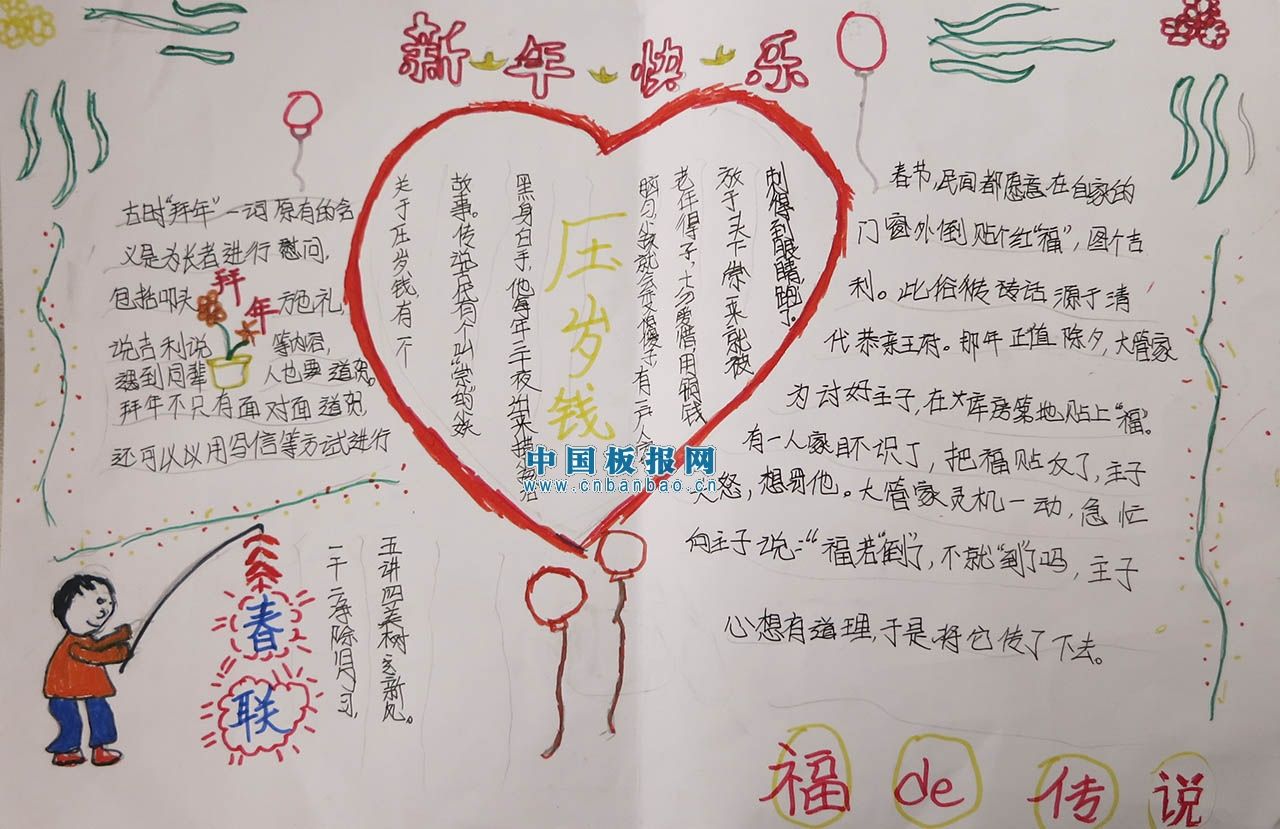 新年快乐
古时“拜年”一词原有的含
义是为长者进行慰问,
包括叩头 方色礼,
说吉利说 等内容,
遇到同辈 人也要道贺。
拜年不只有面对面道贺
还可以以用写信等方试进行
拜年
关于压岁钱有一个
故事。传说古民有个叫“祟”的妖
黑身白手,他每年三十夜出来摸
压岁钱
脑勺,孩就会变傻子。有一户人
老年得子,十分爱惜,用铜钱
放于头下祟来就被
刺得到眼睛,跑了。
中国板报网
www.cnbanbao.cn
春节,民间都愿意在自家的
门窗外倒贴个红“福”,图个吉
利。此俗 源于清
代恭亲王府。那年正值除夕,大管家
为讨好主子,在 库房 地贴上“福”。
有一人家目不识丁,把福贴反了,主子
大怒,想罚他。大管家灵机一动,急忙
向主子说:“福若“倒”了,不就“到”了吗,主子
心想有道理,于是,将它传了下去。
春联
五讲四美树新风。
一干二净除旧习,
福de传说